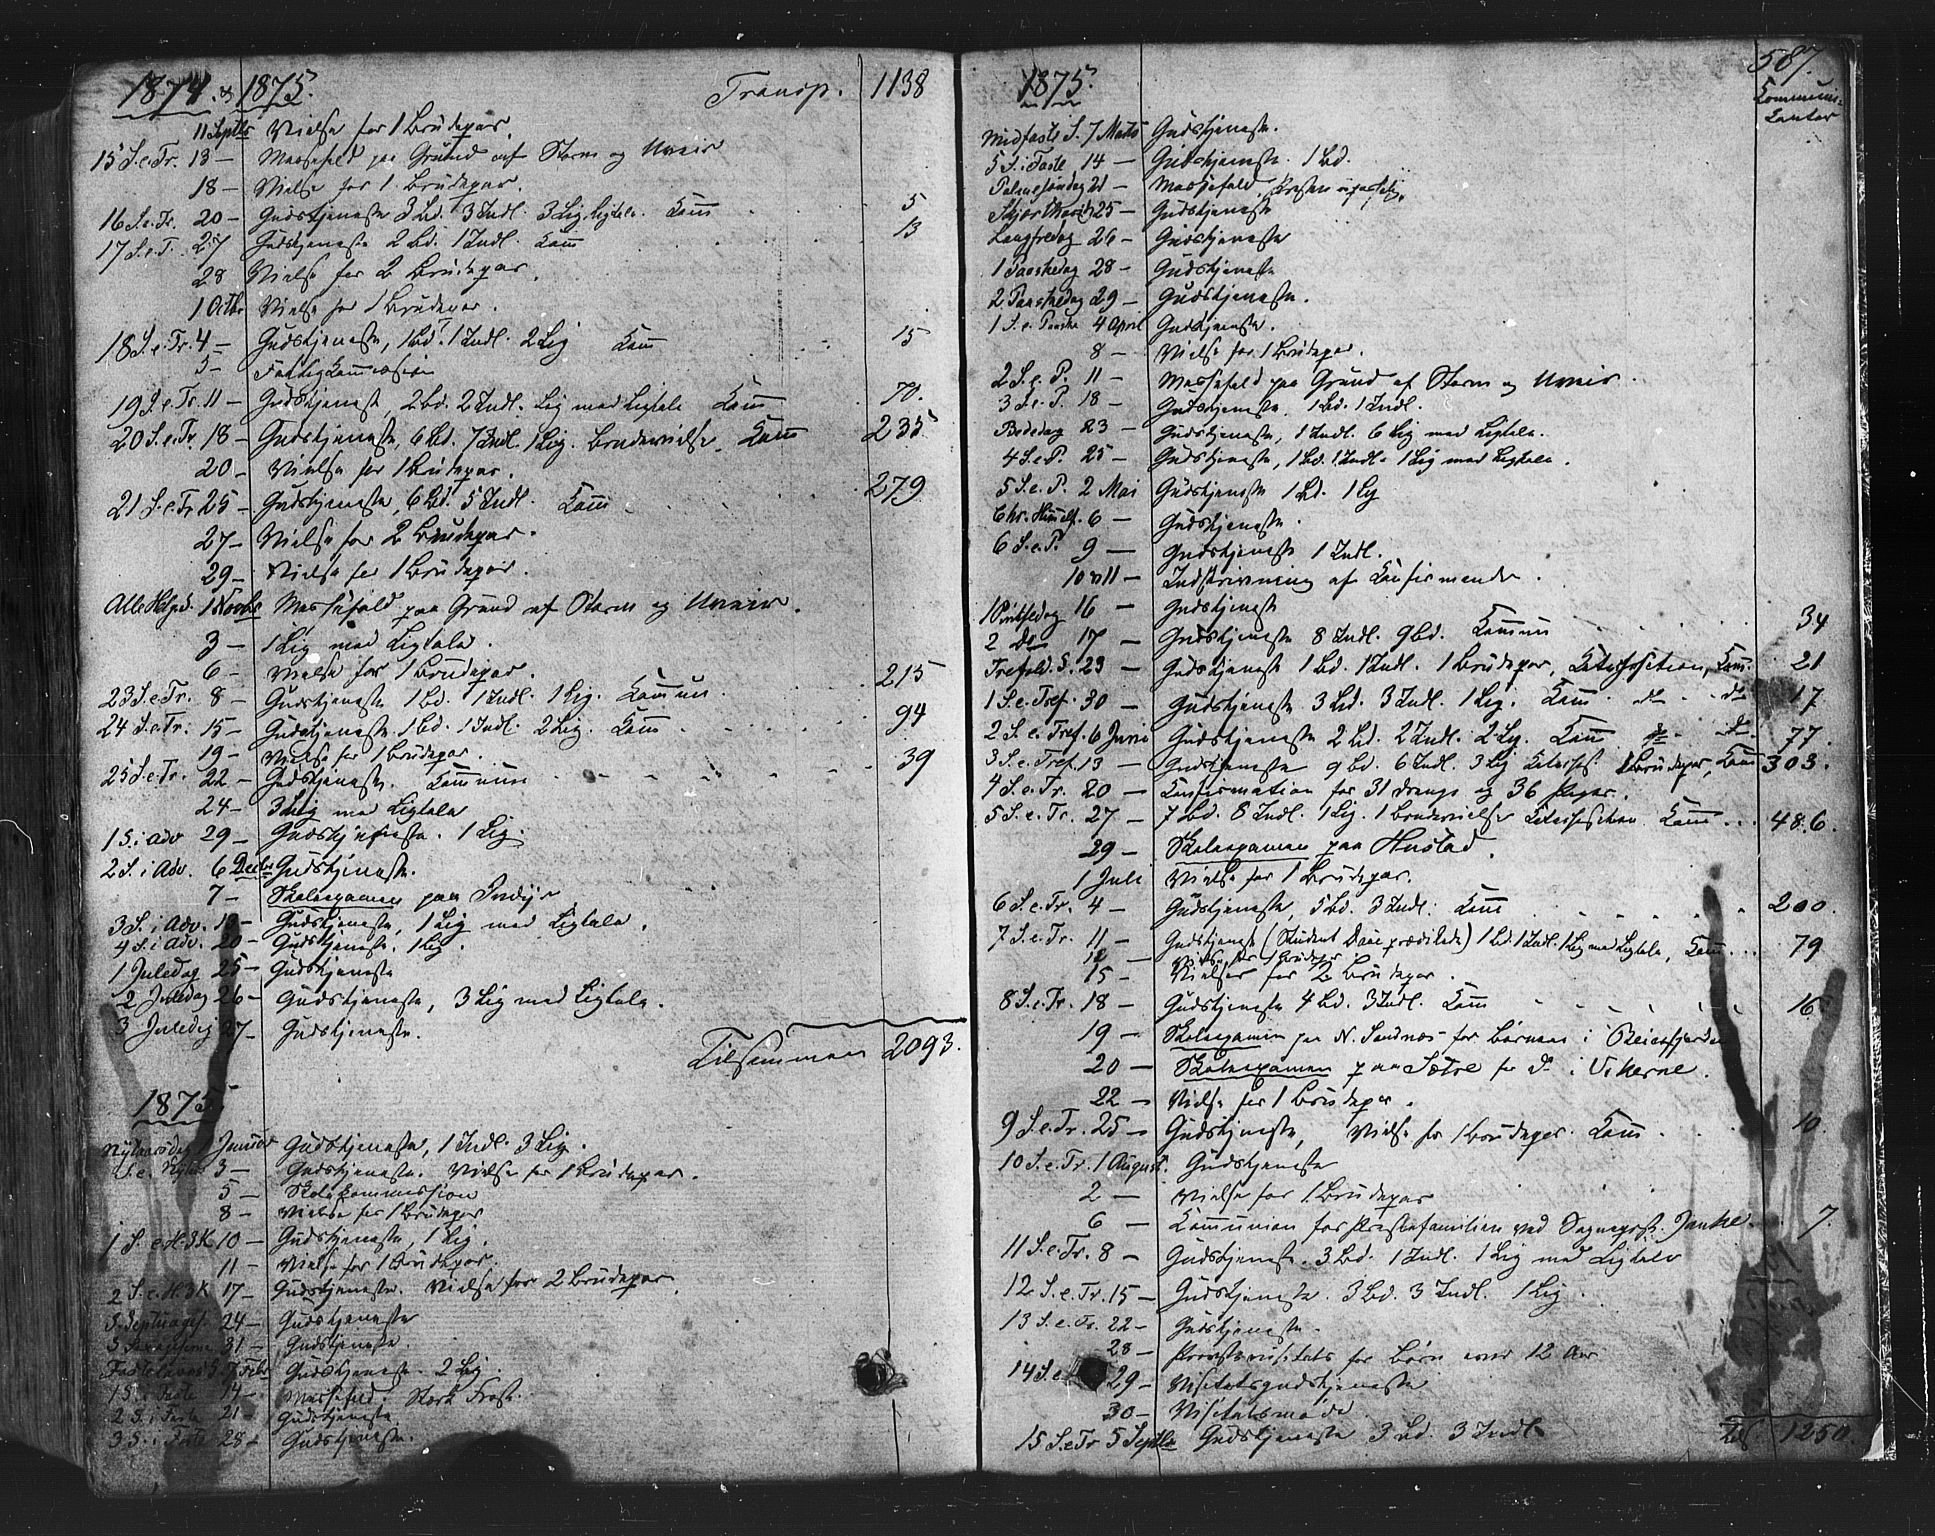 1874 & 1875. Transp. 1138
11 Septbr Vielse for 1 Brudepar.
15 S.e.Tr. 13 — Messefald paa Grund af Storm og Uveir
18 — Vielse for 1 Brudepar.
16 S.e.Tr. 20 — Gudstjeneste 3 Bd. 3 Indl. 3 Lig, Ligtale. Com 5
17 S.e.T. 27 Gudstjeneste 2 Bd. 1 Indl. Com 13
28 Vielse for 2 Brudepar.
1 Octbr Vielse for 1 Brudepar.
18 S.e.Tr. 4 — Gudstjeneste, 1 Bd. 1 Indl. 2 Lig Com 15
5 — Fattigkommission
19 S.e.Tr. 11 — Gudstjeneste, 2 Bd. 2 Indl. Lig med Ligtale Com 70.
20 S.e.Tr. 18 — Gudstjeneste, 6 Bd. 7 Indl. 1 Lig. Brudevielse. Com 235
20 — Vielse for 1 Brudepar.
21 S.e.Tr 25 — Gudstjeneste, 6 Bd. 5 Indl. Com 279
27 — Vielse for 2 Brudepar.
29 — Vielse for 1 Brudepar.
Alle Helgd. 1 Novbr Messefald paa Grund af Storm og Uveir.
3 — 1 Lig med Ligtale.
6 — Vielse for 1 Brudepar.
23 S.e.Tr. 8 — Gudstjeneste 1 Bd. 1 Indl. 1 Lig. Commun. 215
24 S.e.Tr. 15 — Gudstjeneste. 1 Bd. 1 Indl. 2 Lig. Com 94
19 — Vielse for 1 Brudepar.
25 S.e.Tr. 22 — Gudstjeneste. Commun 39
24 — 3 Lig med Ligtale
1 S. i Adv 29 — Gudstjeneste. 1 Lig.
2 S. i Adv. 6 Decbr Gudstjeneste.
7 — Skoleexamen paa Indyr
3 S. i Adv. 13 — Gudstjeneste, 1 Lig med Ligtale.
4 S. i Adv. 20 — Gudstjeneste. 1 Lig.
1 Juledag 25 — Gudstjeneste
2 Juledag 26 — Gudstjeneste, 3 Lig med Ligtale.
3 Juledag 27 — Gudstjeneste.
Tilsammen 2093.
1875.
Nytaarsdag 1 Januar Gudstjeneste, 1 Indl. 3 Lig.
S.e. Nytaar 3 — Gudstjeneste. Vielse for 1 Brudepar.
5 — Skolekommission
8 — Vielse for 1 Brudepar
1 S. e. H. 3 K 10 — Gudstjeneste, 1 Lig.
11 — Vielse for 1 Brudepar.
2 S. e. H. 3 K 17 — Gudstjeneste. Vielse for 2 Brudepar.
S. Septuages. 24 — Gudstjeneste
S. Sexagesima 31 — Gudstjeneste.
Fastelavns S. 7 Febr Gudstjeneste. 2 Lig.
1 S. i Faste 14 — Messefald. Stærk Frost.
2 S. i Faste 21 — Gudstjeneste.
3 S. i Faste 28 — Gudstjeneste.
587.
1875. Communi=
canter
Midfaste S. 7 Marts Gudstjeneste.
5 S. i Faste 14 — Gudstjeneste. 1 Bd.
Palmesøndag 21 — Messefald, Præsten
Skjærthorsd. 25 — Gudstjeneste
Langfredag 26 — Gudstjeneste
1 Paaskedag 28 — Gudstjeneste
2 Paaskedag 29 — Gudstjeneste.
1 S. e. Paaske 4 April Gudstjeneste.
8 — Vielse for 1 Brudepar.
2 S. e. P. 11 — Messefald paa Grund af Storm og Uveir.
3 S. e. P. 18 — Gudstjeneste. 1 Bd. 1 Indl.
Bededag 23 — Gudstjeneste, 1 Indl. 6 Lig med Ligtale.
4 S.e.P. 25 — Gudstjeneste, 1 Bd. 1 Indl. 1 Lig med Ligtale.
5 S.e.P. 2 Mai Gudstjeneste 1 Bd. 1 Lig
Chr. Himmelf. 6 — Gudstjeneste.
6 S.e.P. 9 — Gudstjeneste 1 Indl.
10 & 11 — Indskrivning af Confirmander.
1 Pintsedag 16 — Gudstjeneste
2 do 17 — Gudstjeneste 8 Indl. 9 Bd. Commun 34
Trefold. S. 23 — Gudstjeneste 1 Bd. 1 Indl. 1 Brudepar, Catechisation, Com. 21
1 S. e. Tref. 30 — Gudstjeneste 3 Bd. 3 Indl. 1 Lig. Com do do 17
2 S. e. Tref. 6 Juni Gudstjeneste 2 Bd. 2 Indl. 2 Lig. Com do do 77.
3 S. e. Tref. 13 — Gudstjeneste 9 Bd. 6 Indl. 3 Lig Catechis. 1 Brudepar, Com 303.
4 S. e. Tr. 20 — Confirmation for 31 Drenge og 36 Piger.
5 S. e. Tr. 27 — 7 Bd. 8 Indl. 1 Lig. 1 Brudevielse Catechisation Com 486.
29 — Skoleexamen paa Hustad.
1 Juli Vielse for 1 Brudepar.
6 S. e. Tr. 4 — Gudstjeneste, 5 Bd. 3 Indl. Com 200.
7 S. e. Tr. 11 — Gudstjeneste (Student Daae prædikede) 1 Bd. 1 Indl. 1 Lig med Ligtale, Com 79
12 — Vielse for 1 Brudepar
15 — Vielser for 2 Brudepar.
8 S.e.Tr. 18 — Gudstjeneste 4 Bd. 3 Indl. Com 16.
19 — Skoleexamen paa N. Sandnæs for Børnene i Beierfjorden
20 — Skoleexamen paa Sætre for do i Vikerne.
22 — Vielse for 1 Brudepar.
9 S.e.Tr. 25 — Gudstjeneste, Vielse for 1 Brudepar. Com. 10.
10 S.e.Tr. 1 August. Gudstjeneste
2 — Vielse for 1 Brudepar
6 — Communion for Præstefamilien ved Sognepræst Janke. 7.
11 S.e.Tr. 8 — Gudstjeneste. 3 Bd. 1 Indl. 1 Lig med Ligtale
12 S. e. Tr. 15 — Gudstjeneste. 3 Bd. 3 Indl. 1 Lig.
13 S. e. Tr. 22 — Gudstjeneste.
28 — Provstevisitats for Børn over 12 Aar
14 S.e. 29 — Visitatsgudstjeneste
30 — Visitatsmøde
15 S.e.Tr 5 Septbr Gudstjeneste 3 Bd. 3 Indl. 1250.